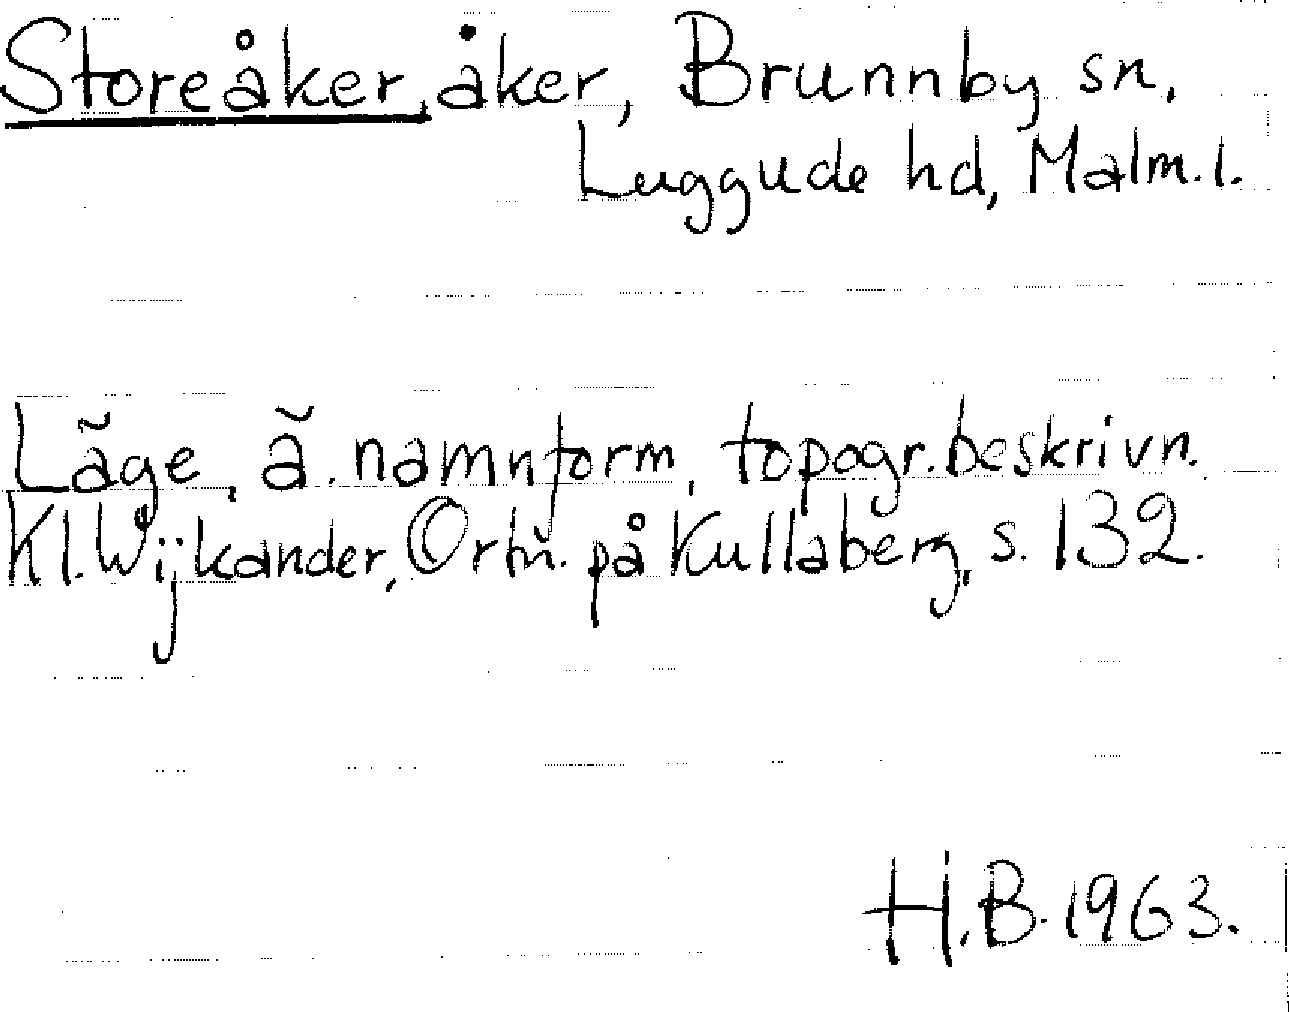 Storeåker, åker, Brunnby sn,
Luggude hd, Malm.l.
Läge, ä. namnform, topogr.beskrivn.
Kl. Wijkander, Ortn. på Kullaberg, s. 132.
H.B. 1963.